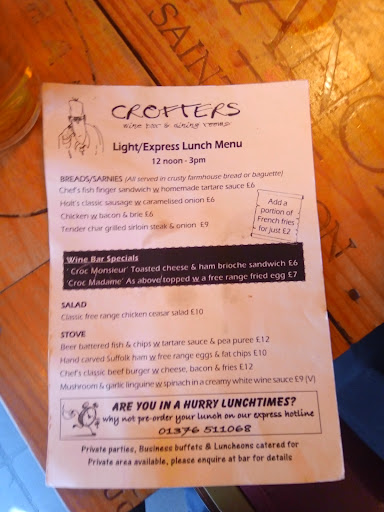 SAIN
CROFTERS
wine bar & dining rooms
Light/Express Lunch Menu
12 noon - 3pm
BREADS/SARNIES (All served in crusty farmhouse bread or baguette)
Chef's fish finger sandwich w homemade tartare sauce £6
Holt's classic sausage w caramelised onion £6
Chicken w bacon & brie £6
Tender char grilled sirloin steak & onion £9
Add a
portion of
French fries
for just £2
Wine Bar Specials
'Croc Monsieur' Toasted cheese & ham brioche sandwich £6
'Croc Madame' As above topped w a free range fried egg £7
SALAD
Classic free range chicken ceasar salad £10
STOVE
Beer battered fish & chips w tartare sauce & pea puree £12
Hand carved Suffolk ham w free range eggs & fat chips £10
Chef's classic beef burger w cheese, bacon & fries £12
Mushroom & garlic linguine w spinach in a creamy white wine sauce £9 (V)
ARE YOU IN A HURRY LUNCHTIMES?
why not pre-order your lunch on our express hotline
01376 511068
Private parties, Business buffets & Luncheons catered for
Private area available, please enquire at bar for details